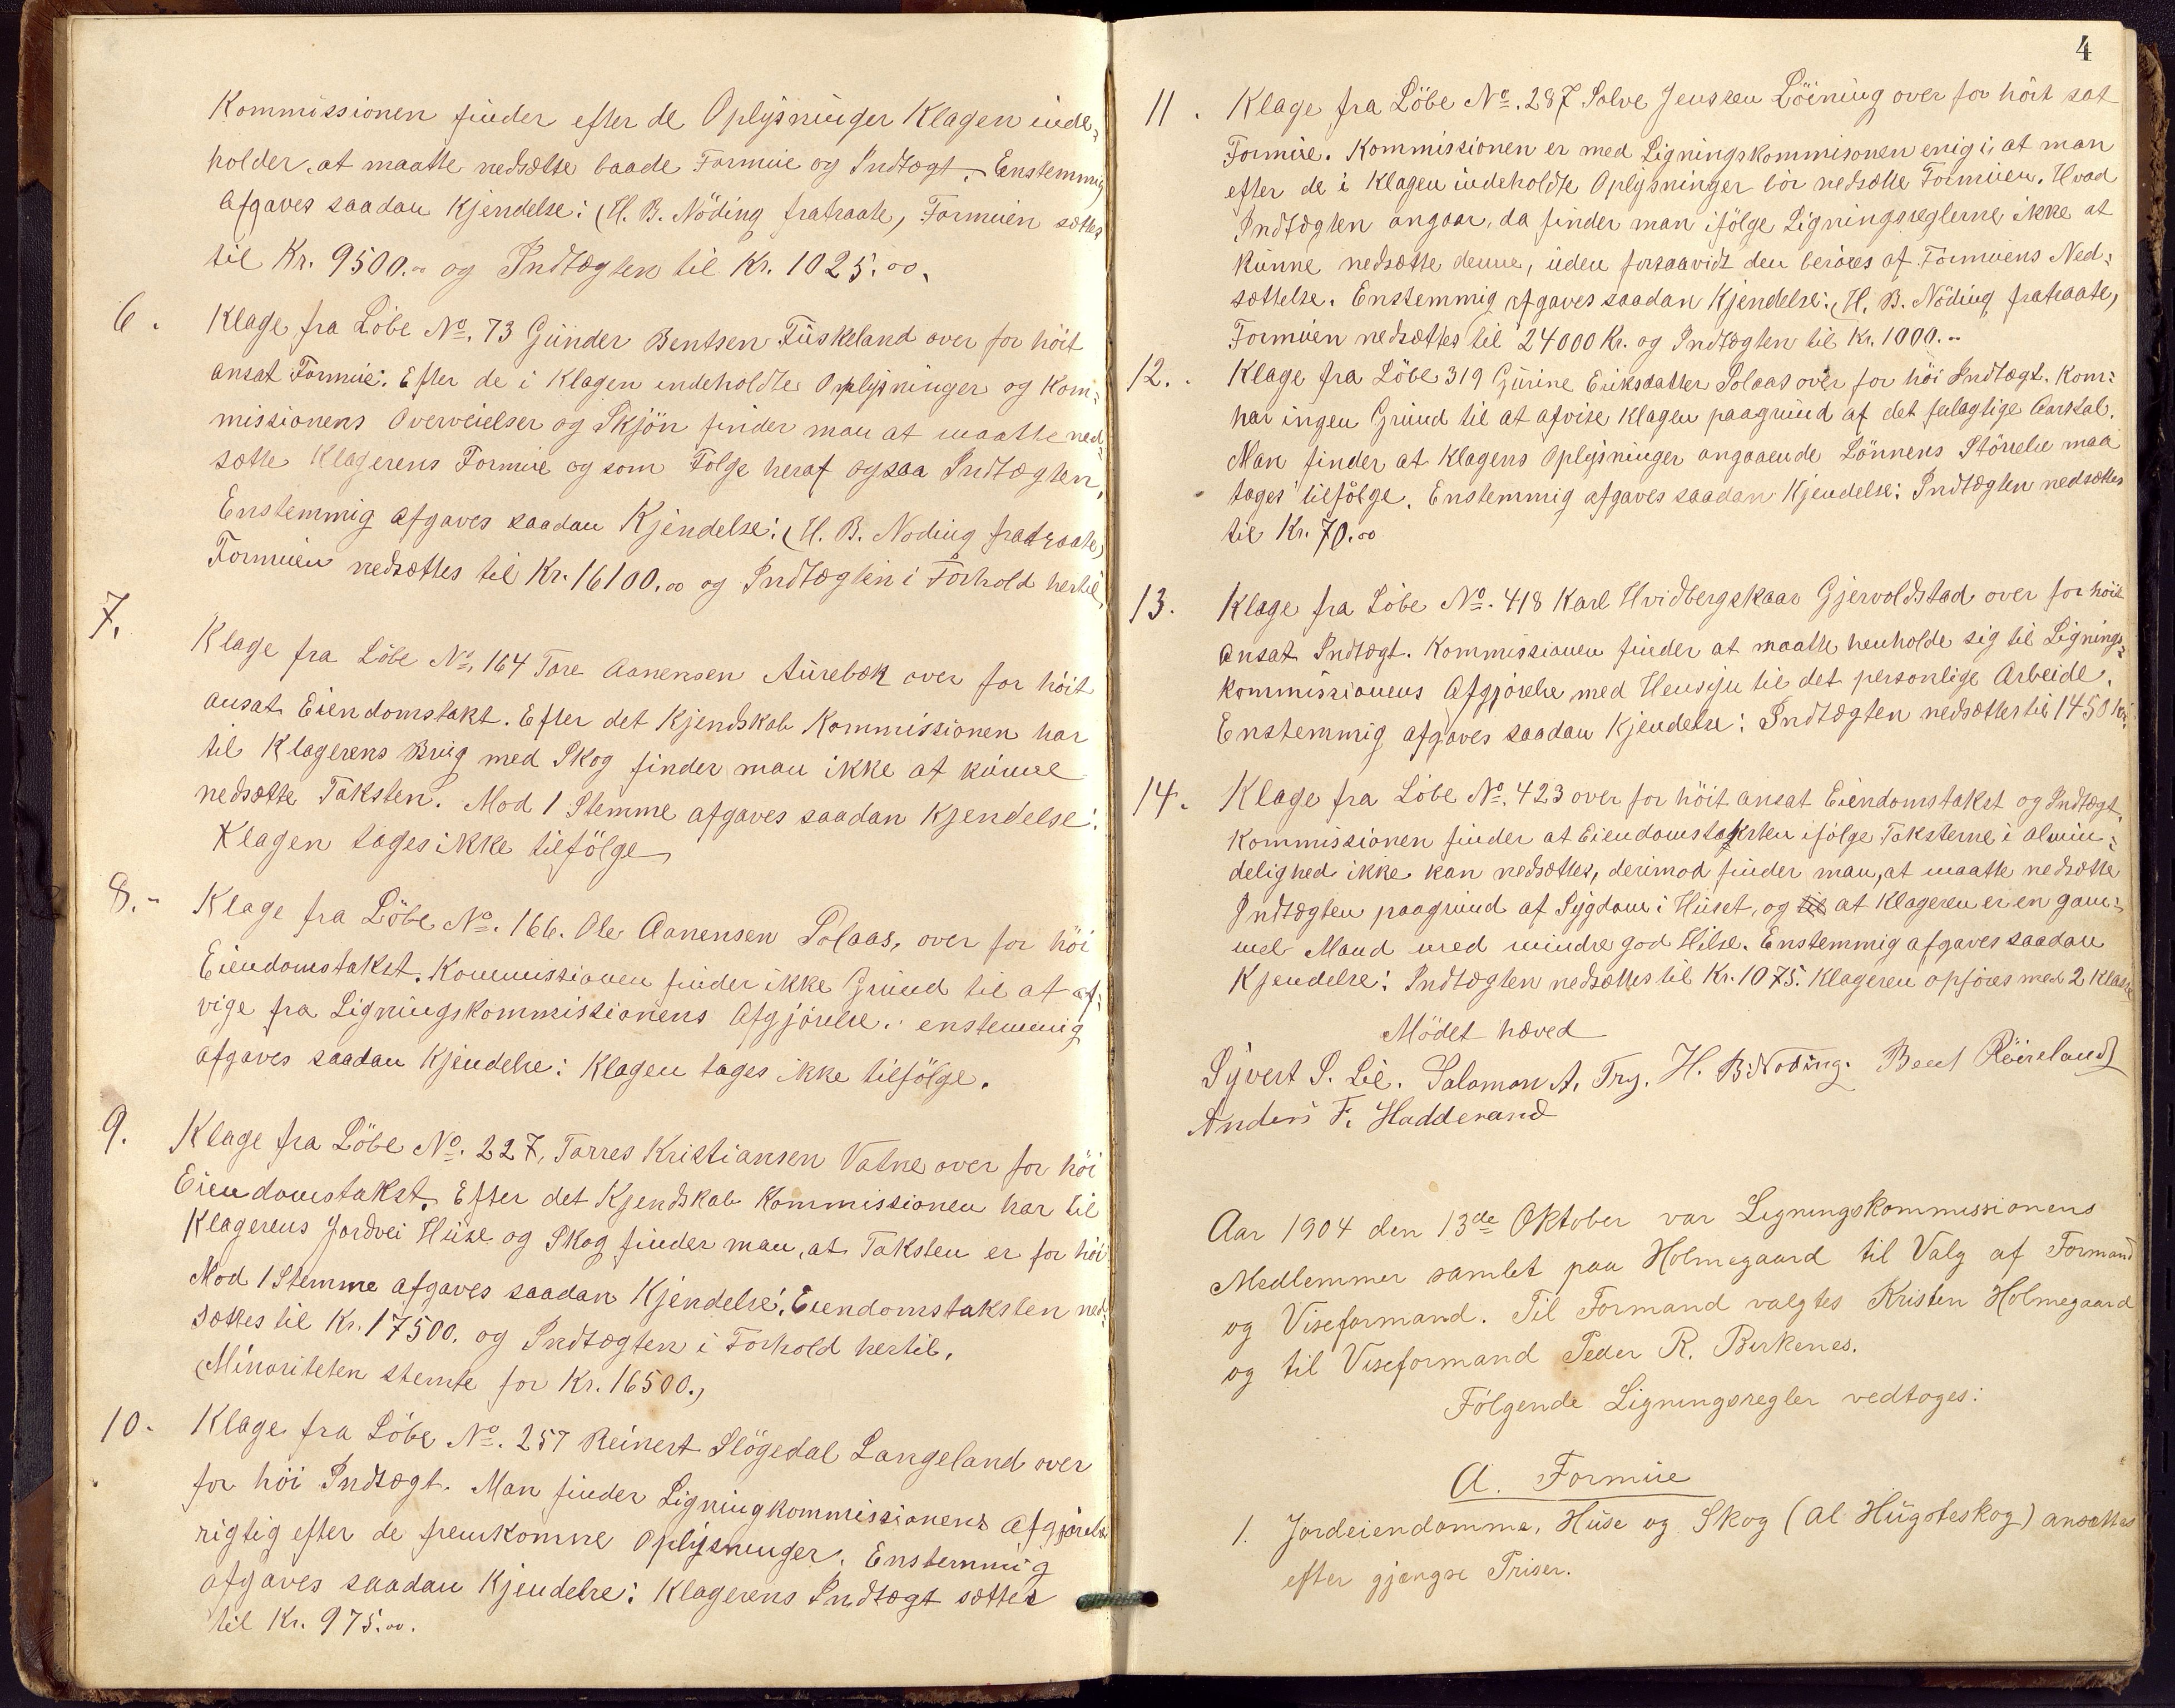 Kommissionen finder efter de Oplysninger Klagen inde-
holder, at maatte nedsætte baade Formue og Indtægt. Enstemmig
afgaves saadan Kjendelse: (H. B. Nöding fratraate, Formuen sættes
til Kr. 9500.00 og Indtægten til Kr. 1025.00.
6. Klage fra Löbe No. 73 Gunder Bentsen Fuskeland over for höit
ansat Formue. Efter de i Klagen indeholdte Oplysninger og Kom-
missionens Overveielser og Skjön finder man at maatte ned-
sætte Klagerens Formue og som Følge heraf ogsaa Indtægten.
Enstemmig afgaves saadan Kjendelse: (H. B. Noding fratraate)
Formuen nedsættes til Kr. 16100.00 og Indtægten i Forhold hertil.
7. Klage fra Löbe No. 164 Tore Aanensen Aurebæk over for höit
ansat Eiendomstakt. Efter det Kjendskab Kommissionen har
til Klagerens Brug med Skog finder man ikke at kunne
nedsætte Taksten. Mod 1 Stemme afgaves saadan Kjendelse:
Klagen tages ikke tilfölge
8. Klage fra Löbe No. 166. Ole Aanensen Solaas, over for höi
Eiendomstakst. Kommissionen finder ikke Grund til at af-
vige fra Ligningskommissionens Afgjörelse. enstemmig
afgaves saadan Kjendelse: Klagen tages ikke tilfölge.
9. Klage fra Löbe No. 227, Torres Kristiansen Vatne over for höi
Eiendomstakst. Efter det Kjendskab Kommissionen har til
Klagerens Jordvei Huse og Skog finder man, at Taksten er for höi.
Mod 1 Stemme afgaves saadan Kjendelse: Eiendomstaksten ned-
sættes til Kr. 17500. og Indtægten i Forhold hertil.
(Minoriteten stemte for Kr. 16500.)
10. Klage fra Löbe No. 257 Reinert Slögedal Langeland over
for höi Indtægt. Man finder Ligningkommissionens Afgjörelse
rigtig efter de fremkomne Oplysninger. Enstemmig
afgaves saadan Kjendelse: Klagerens Indtægt sættes
til Kr. 975.00.
4
11. Klage fra Löbe No. 287 Salve Jenssen Löining over for höit sat
Formue. Kommissionen er med Ligningskommisonen enig i, at man
efter de i Klagen indeholdte Oplysninger bör nedsætte Formuen. Hvad
Indtægten angaar, da finder man ifölge Ligningsreglerne ikke at
kunne nedsætte denne, uden forsaavidt den beröres af Formuens Ned-
sættelse. Enstemmig afgaves saadan Kjendelse: (H. B. Nöding fratraate,
Formuen nedsættes til 24000 Kr. og Indtægten til Kr. 1000.-
12. Klage fra Löbe 319 Gurine Eriksdatter Solaas over for höi Indtægt. Kom:
har ingen Grund til at afvise Klagen paagrund af det feilagtige Aarstal.
Man finder at Klagens Oplysninger angaaende Lönnens Störrelse maa
tages tilfölge. Enstemmig afgaves saadan Kjendelse: Indtægten nedsættes
til Kr. 70.00
13. Klage fra Löbe No. 418 Karl Hvidbergskaar Gjervoldstad over for höit
ansat Indtægt. Kommissionen finder at maatte henholde sig til Lignings-
kommissionens Afgjörelse med Hensyn til det personlige Arbeide.
Enstemmig afgaves saadan Kjendelse: Indtægten nedsættes til 1450 Kr.
14. Klage fra Löbe No. 423 over for höit ansat Eiendomstakst og Indtægt.
Kommissionen finder at Eiendomstaksten ifölge Taksterne i almin-
delighed ikke kan nedsættes, derimod finder man, at maatte nedsætte
Indtægten paagrund af Sygdom i Huset, og til at Klageren er en gam-
mel Mand med mindre god Hilse. Enstemmig afgaves saadan
Kjendelse: Indtægten nedsættes til Kr. 1075. Klageren opföres med 2 Klasse
Mödet hæved
Syvert S. Lie. Salomon A. Try. H. B. Noding. Bent Röireland
Anders F. Hadderand
Aar 1904 den 13de Oktober var Ligningskommissionens
Medlemmer samlet paa Holmegaard til Valg af Formand
og Viseformand. Til Formand valgtes Kristen Holmegaard
og til Viseformand Peder R. Birkenes.
Følgende Ligningsregler vedtoges:
A. Formue
1. Jordeiendomme, Huse og Skog (al Hugsteskog) ansættes
efter gjængse Priser.